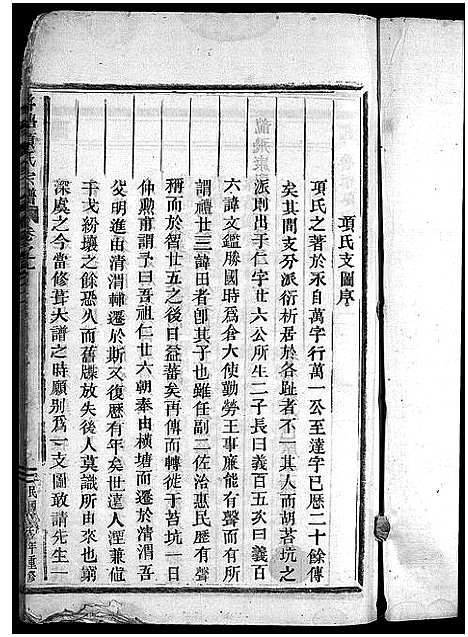 項氏支圖序
項氏之著於永自萬字行萬一公至達字已歷二十餘傳
矣其間支分派衍析居於各趾者不一其人而胡苔坑之
派則出于仁字廿六公所生二子長曰義百五次曰義百
六諱文鑑勝國時爲倉大使勤勞王事廉能有聲而有所
謂禮廿三諱田者卽其子也雖任副二佐治惠民歷有聲
稱而於智廿五之後日益蕃矣再傳而轉徙于苔坑一日
仲勲甫謂予曰吾祖仁廿六朝奉由橫塘而遷於清渭吾
父明進由清渭轉遷於斯又復歷有年矣世遠人湮兼値
干戈紛壞之餘恐久而舊牒放失後人莫識所由來也窮
深虞之今當修葺大譜之時願别爲一支圖敢請先生一
項氏宗譜
卷之
民國 年重修